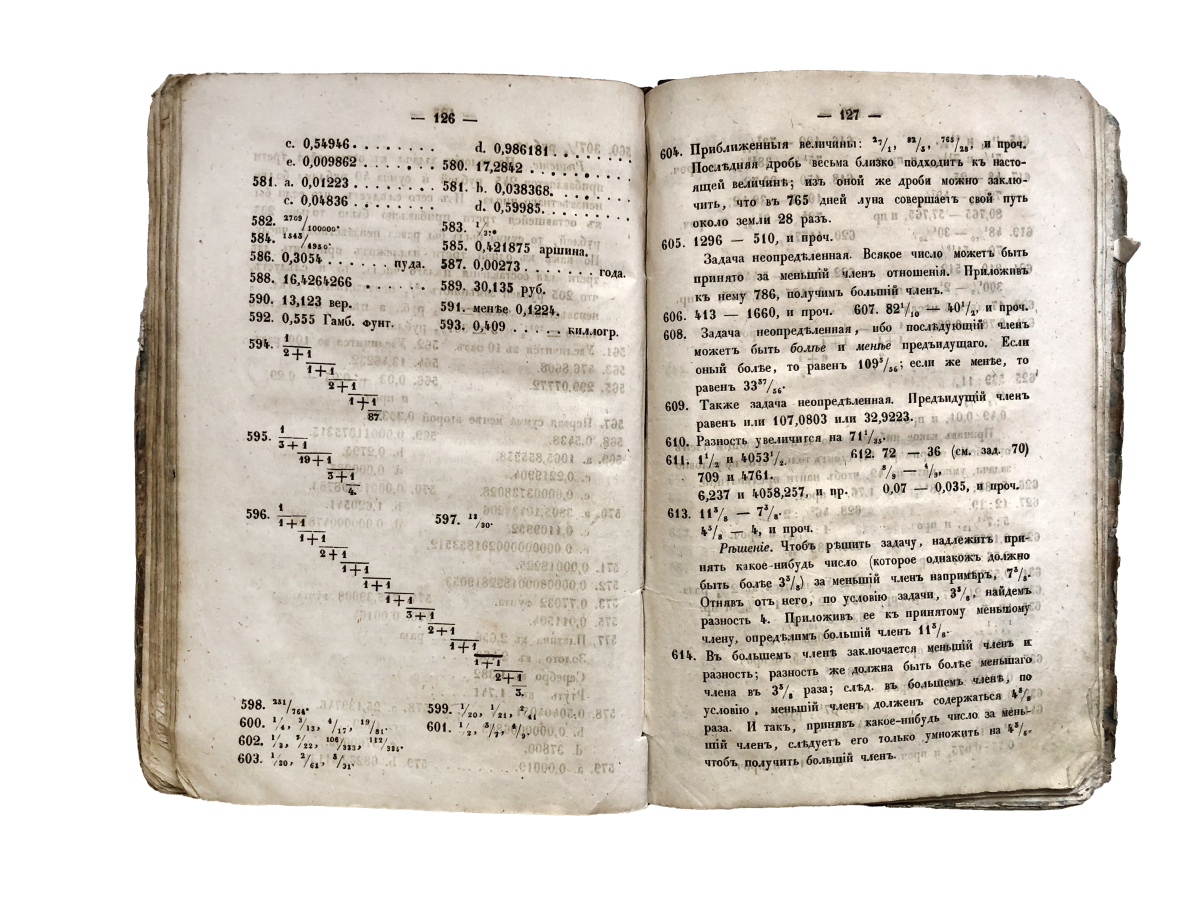 — 126 —
c. 0,54946 . . . . . . . . d. 0,986181 . . . . . . .
e. 0,009862 . . . . . . . 580. 17,2842 . . . . . . . .
581. a. 0,01223 . . . . . . . 581. b. 0,038368.
c. 0,04836 . . . . . . . d. 0,59985.
582. 2709/100000. 583.
584. 585. 0,421875 аршина.
586. 0,3054 . . . . . . . пуда. 587. 0,00273 . . . . . . . года.
588. 16,4264266 . . . . . . 589. 30,135 руб.
590. 13,123 вер. 591. менѣе 0,1224.
592. 0,555 Гамб. фунт. 593. 0,409 . . . . . киллогр.
594. 1
2+1
1+1
2+1
1+1
87.
595. 1
3+1
19+1
3+1
4.
596. 1
1+1 597. 13/30.
1+1
2+1
1+1
1+1
1+1
3+1
2+1
1+1
1+1
2+1
3.
598. 251/764. 599. 1/20, 1/21, 2/41
600. 1/4, 3/13, 4/17, 19/81. 601. 1/2, 3/7, 4/9.
602. 1/3, 7/22, 106/333, 112/
603. 1/20, 2/61, 3/91.
— 127 —
604. Приближенныя величины: 27/1, 82/3, 765/28, и проч.
Послѣдняя дробь весьма близко подходитъ къ насто-
ящей величинѣ; изъ оной же дроби можно заклю-
чить, что въ 765 дней луна совершаетъ свой путь
около земли 28 разъ.
605. 1296 — 510, и проч.
Задача неопредѣленная. Всякое число можетъ быть
принято за меньшій членъ отношенія. Приложивъ
къ нему 786, получимъ большій членъ.
606. 413 — 1660, и проч. 607. 82 1/10 — 40 1/2, и проч.
608. Задача неопредѣленная, ибо послѣдующій членъ
можетъ быть болѣе и менѣе предъидущаго. Если
оный болѣе, то равенъ 109 5/56; если же менѣе, то
равенъ 33 37/56.
609. Также задача неопредѣленная. Предъидущій членъ
равенъ или 107,0803 или 32,9223.
610. Разность увеличится на 71 1/35.
611. 1 1/2 и 4053 1/2. 612. 72 — 36 (см. зад. 70)
709 и 4761. 8/9 — 4/9,
6,237 и 4058,257, и пр. 0,07 — 0,035, и проч.
613. 11 3/8 — 7 3/8.
4 3/8 — 4, и проч.
Рѣшеніе. Чтобъ рѣшить задачу, надлежитъ при-
нять какое-нибудь число (которое однакожъ должно
быть болѣе 3 3/8) за меньшій членъ напримѣръ, 7 3/8.
Отнявъ отъ него, по условію задачи, 3 3/8, найдемъ
разность 4. Приложивъ ее къ принятому меньшому
члену, опредѣлимъ большій членъ 11 3/8.
614. Въ большемъ членѣ заключается меньшій членъ и
разность; разность же должна быть болѣе меньшаго
члена въ 3 5/8 раза; слѣд. въ большемъ членѣ, по
условію, меньшій членъ долженъ содержаться 4 5/8
раза. И такъ, принявъ какое-нибудь число за мень-
шій членъ, слѣдуетъ его только умножить на 4 5/8,
чтобъ получить большій членъ.